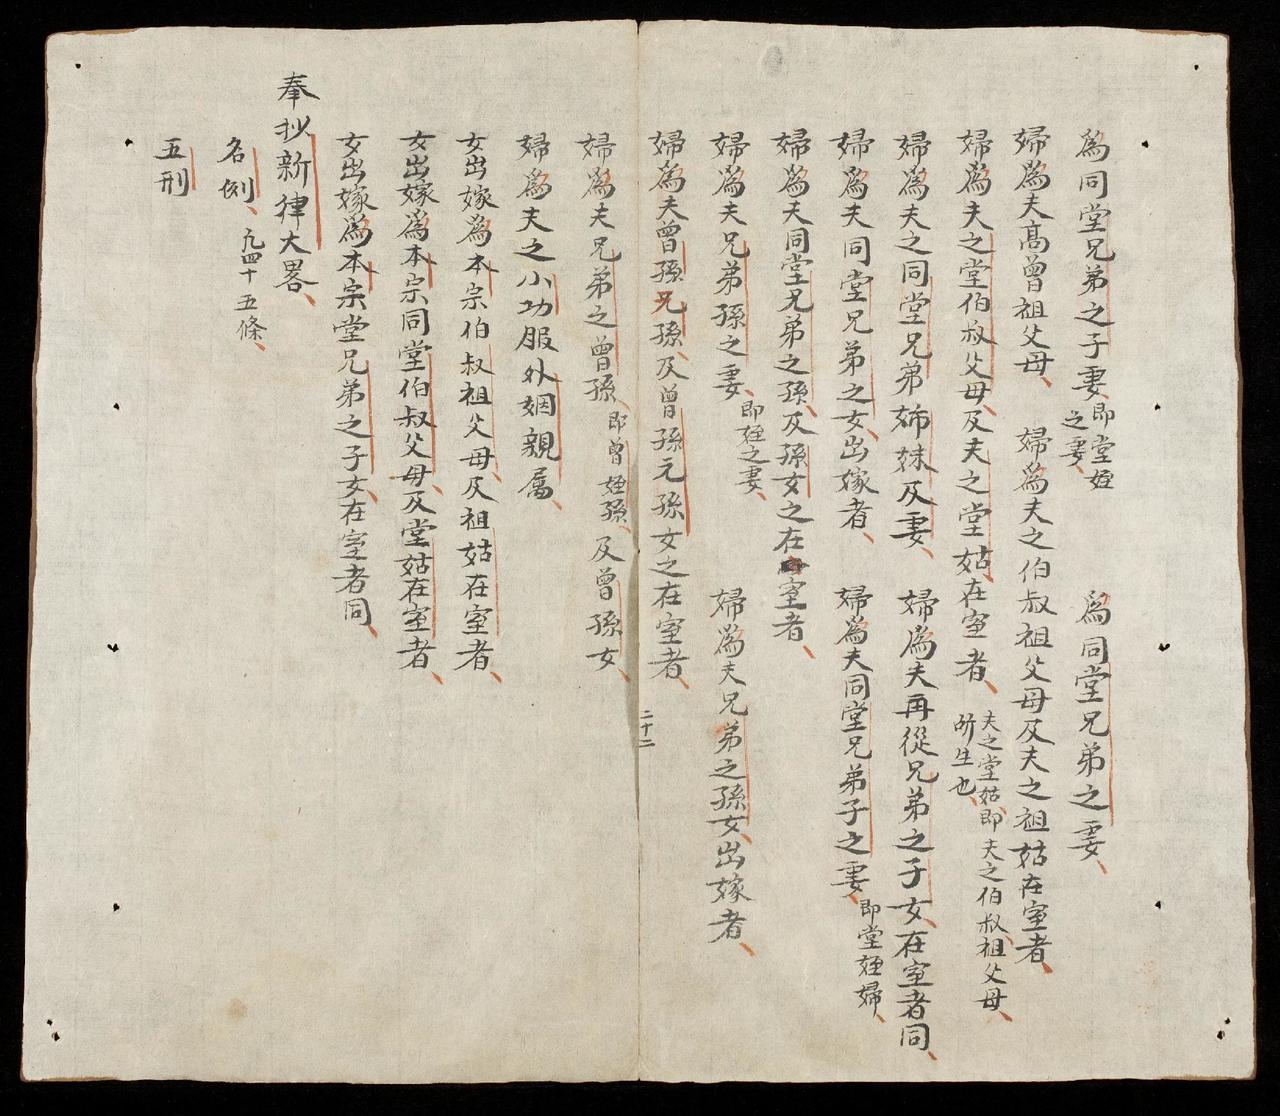 為同堂兄弟之子妻即堂姪之妻 為同堂兄弟之妻
婦為夫高曾祖父母 婦為夫之伯叔祖父母及夫之祖姑在室者
婦為夫之堂伯叔父母及夫之堂姑在室者夫之堂姑即夫之伯叔祖父母所生也
婦為夫之同堂兄弟姉妹及妻 婦為夫再從兄弟之子女在室者同
婦為夫同堂兄弟之女出嫁者 婦為夫同堂兄弟子之妻即堂姪婦
婦為夫同堂兄弟之孫及孫女之在室者
婦為夫兄弟孫之妻即姪之妻 婦為夫兄弟之孫女出嫁者
婦為夫曾孫元孫及曾孫元孫女之在室者
二十二
婦為夫兄弟之曾孫即曾姪孫及曾孫女
婦為夫之小功服外姻親属
女出嫁為本宗伯叔祖父母及祖姑在室者
女出嫁為本宗同堂伯叔父母及堂姑在室者
女出嫁為本宗堂兄弟之子女在室者同
奉抄新律大畧
名例凢四十五條
五刑